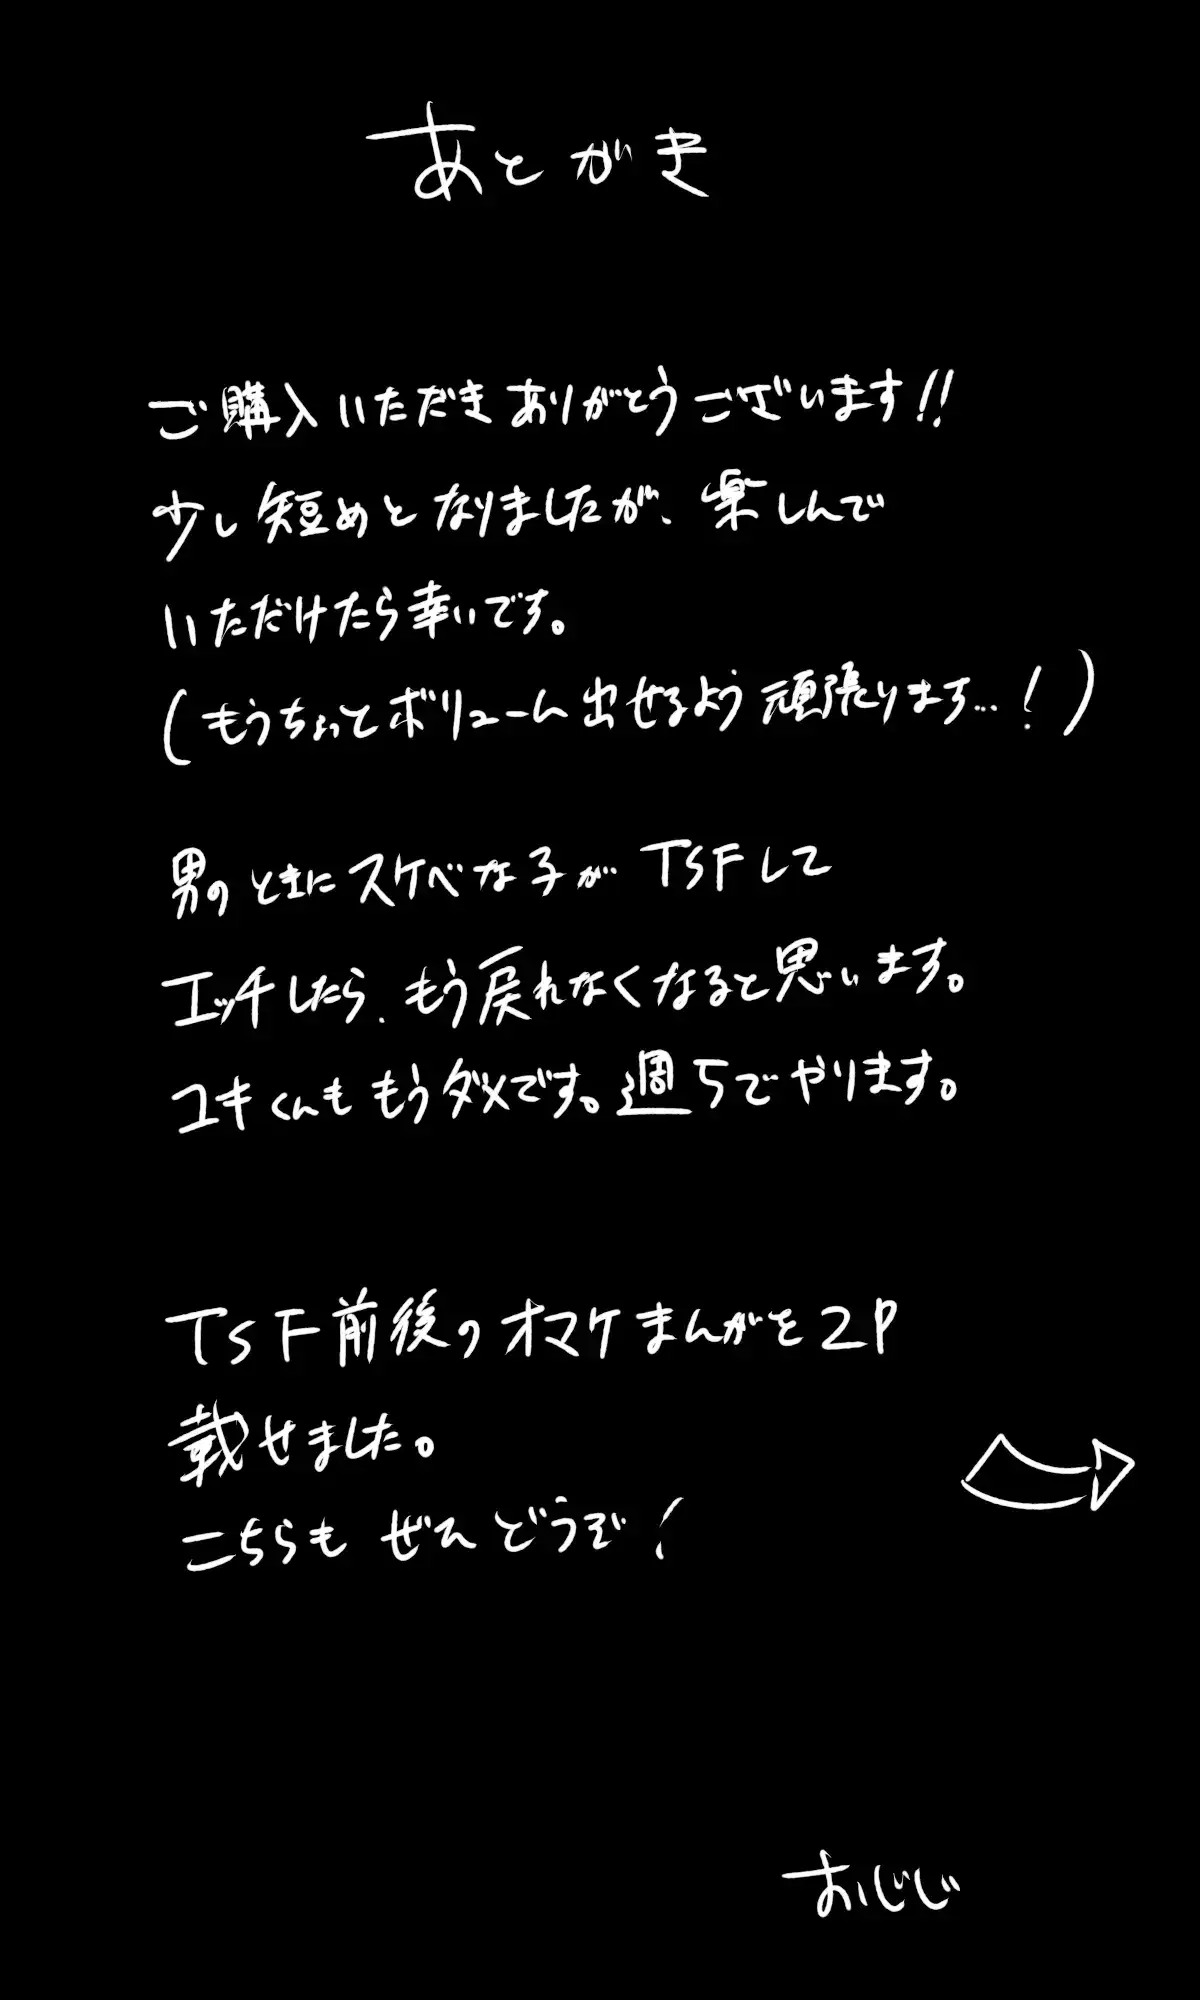 あとがき
ご購入いただきありがとうございます!!
少し短めとなりましたが、楽しんで
いただけたら幸いです。
(もうちょっとボリューム出せるよう頑張ります…!)
男のときにスケベな子がTSFして
エッチしたら、もう戻れなくなると思います。
ユキくんももうダメです。週5でヤります。
TSF前後のオマケまんがを2P
載せました。
こちらもぜひどうぞ!
おじじ